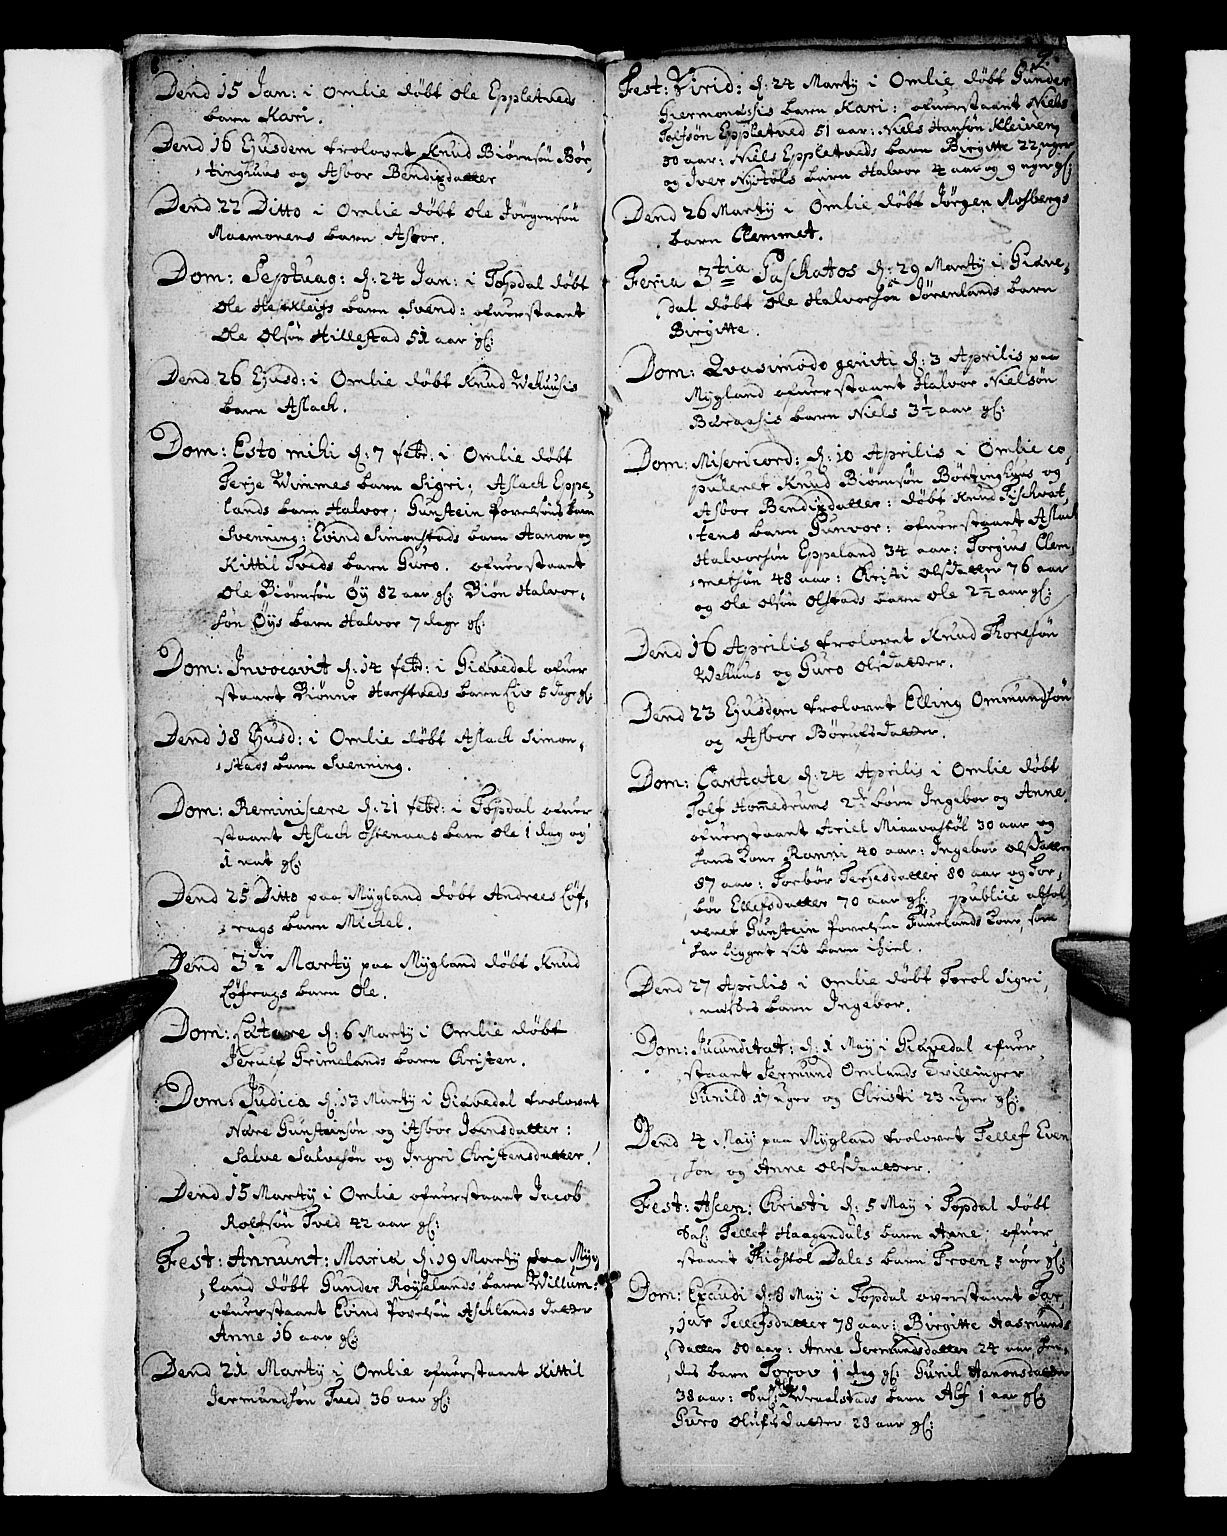 Dend 15 Jan: i Omlie døbt Ole Eppletveds
barn Kari.
Dend 16 Ejusdem trolovet Knud Biørnsøn Bør,
tinghuus og Asbor Bendixdatter
Dend 22 Ditto i Omlie døbt Ole Jörgensøn
barn Asbor.
Dom: Septuag: d: 24 Jan: i Topdal døbt
Ole barn Svend: ofuerstaaet
Ole Olsøn Hillestad 51 aar gl:
Dend 26 Ejusd: i Omlie døbt Knud Wehuusis
barn Aslach.
Dom: Esto mihi d: 7 febr: i Omlie døbt
Terje Wimmes barn Sigri; Aslach Eppe,
lands barn Halvor: Gunstein Povelsøns barn
Svenning: Evind Simonstads barn Aanon og
Kittil Tveds barn Guro. ofuerstaaet
Ole Biørnsøn Øy 82 aar gl: Biøn Halvor,
søn Øys barn Halvor 7 dage gl:
Dom: Invocavit d: 14 febr: i Giøvedal ofuer
staaet Biønne Harstveds barn Liv 5 dage gl:
Dend 18 Ejusd: i Omlie døbt Aslach Simon,
stads barn Svenning.
Dom: Reminiscere d: 21 febr: i Topdal ofuer
staaet Aslach Östenaas barn Ole 1 dag og
1 nat gl:
Dend 25 Ditto paa Mygland døbt Andrees Løf,
rags barn Michel.
Dend 3die Martij paa Mygland døbt Knud
Løfrags barn Ole.
Dom: Lætare d: 6 Martij i Omlie døbt
Jerulf Grimelands barn Christen.
Dom: Judica d: 13 Martij i Giøvedal trolovet
Nære Gunsteinsøn og Asbor Joensdatter:
Salve Salvesøn og Ingri Christensdatter.
Dend 15 Martij i Omlie ofuerstaaet Jacob
Rolfsøn Tved 42 aar gl:
Fest: Annunt: Mariæ d: 19 Martij paa Myg,
land døbt Gunder Røyselands barn Willum:
ofuerstaaet Evind Povelsøn Aschlands datter
Anne 16 aar gl:
Dend 21 Martij i Omlie ofuerstaaet Kittil
Jermundsøn Tved 36 aar gl:
2.
Fest: Virid: d: 24 Martij i Omlie døbt Gunder
barn Kari: ofuerstaaet Niels
Tolfsøn Eppletved 51 aar: Niels Hansøn Kleiven
50 aar: Niels Eppletveds barn Birgitte 22 uger
og Iver Nystöls barn Halvor 4 aar og 9 uger gl:
Dend 26 Martij i Omlie døbt Jørgen Mosbergs
barn Clemmet.
Feria 3tia Paschatos d: 29 Martij i Giøve,
dal døbt Ole Halvorsøn Jørenlands barn
Birgitte.
Dom: Qvasimodo geniti d: 3 Aprilis paa
Mygland ofuerstaaet Halvor Nielsøn
barn Niels 3½ aar gl:
Dom: Misericord: d: 10 Aprilis i Omlie co,
puleret Knud Biørnsøn Börtinghuus og
Asbor Bendixdatter: døbt Knud Fischvat,
tens barn Gunvor: ofuerstaaet Aslach
Halvorsøn Eppeland 34 aar: Torgius Clem,
metsøn 48 aar: Christi Olsdatter 76 aar
og Ole Olsøn Olstads barn Ole 2½ aar gl:
Dend 16 Aprilis trolovet Knud Thoresøn
Wehuus og Guro Olsdatter.
Dend 23 Ejusdem trolovet Elling Ommundsøn
og Asbor Børulsdatter.
Dom: Cantate d: 24 Aprilis i Omlie døbt
Tolf Homedrums 2de børn Ingebor og Anne.
ofuerstaaet Ariel Miaavastøl 30 aar og
hans kone Ranni 40 aar: Ingebor Olsdatter
87 aar: Torbør Terjesdatter 80 aar og Tor,
bør Ellefsdatter 70 aar gl: publice absol,
veret Gunstein Povelsøn Fuurlands kone, som
har ligget sit barn ihiel.
Dend 27 Aprilis i Omlie døbt Torol Sigri,
næstes barn Ingebor.
Dom: Jucunditat: d: 1 Maij i Giøvedal ofuer,
staaet Jermund Omlands Tvillinger
Gunild 17 uger og Christi 23 uger gl:
Dend 4 Maij paa Mygland trolovet Tellef Even
søn og Anne Olsdaatter.
Fest: Ascen: Christi d: 5 Maij i Topdal døbt
Sal: Tellef Haagendals barn Anne: ofuer
staaet Thiøstøl Dales barn Troen 5 uger gl:
Dom: Exaudi d: 8 Maij i Topdal overstaaet Tar,
jær Tellefsdatter 78 aar: Birgitte Aasmunds
datter 50 aar: Anne Jermundsdatter 24 aar hen,
des barn Torov 1 dag gl: Gunil Aanonsdatter
38 aar: Sal: Wraalstads barn Alf 1 aar gl:
Guro Olufsdatter 28 aar gl: